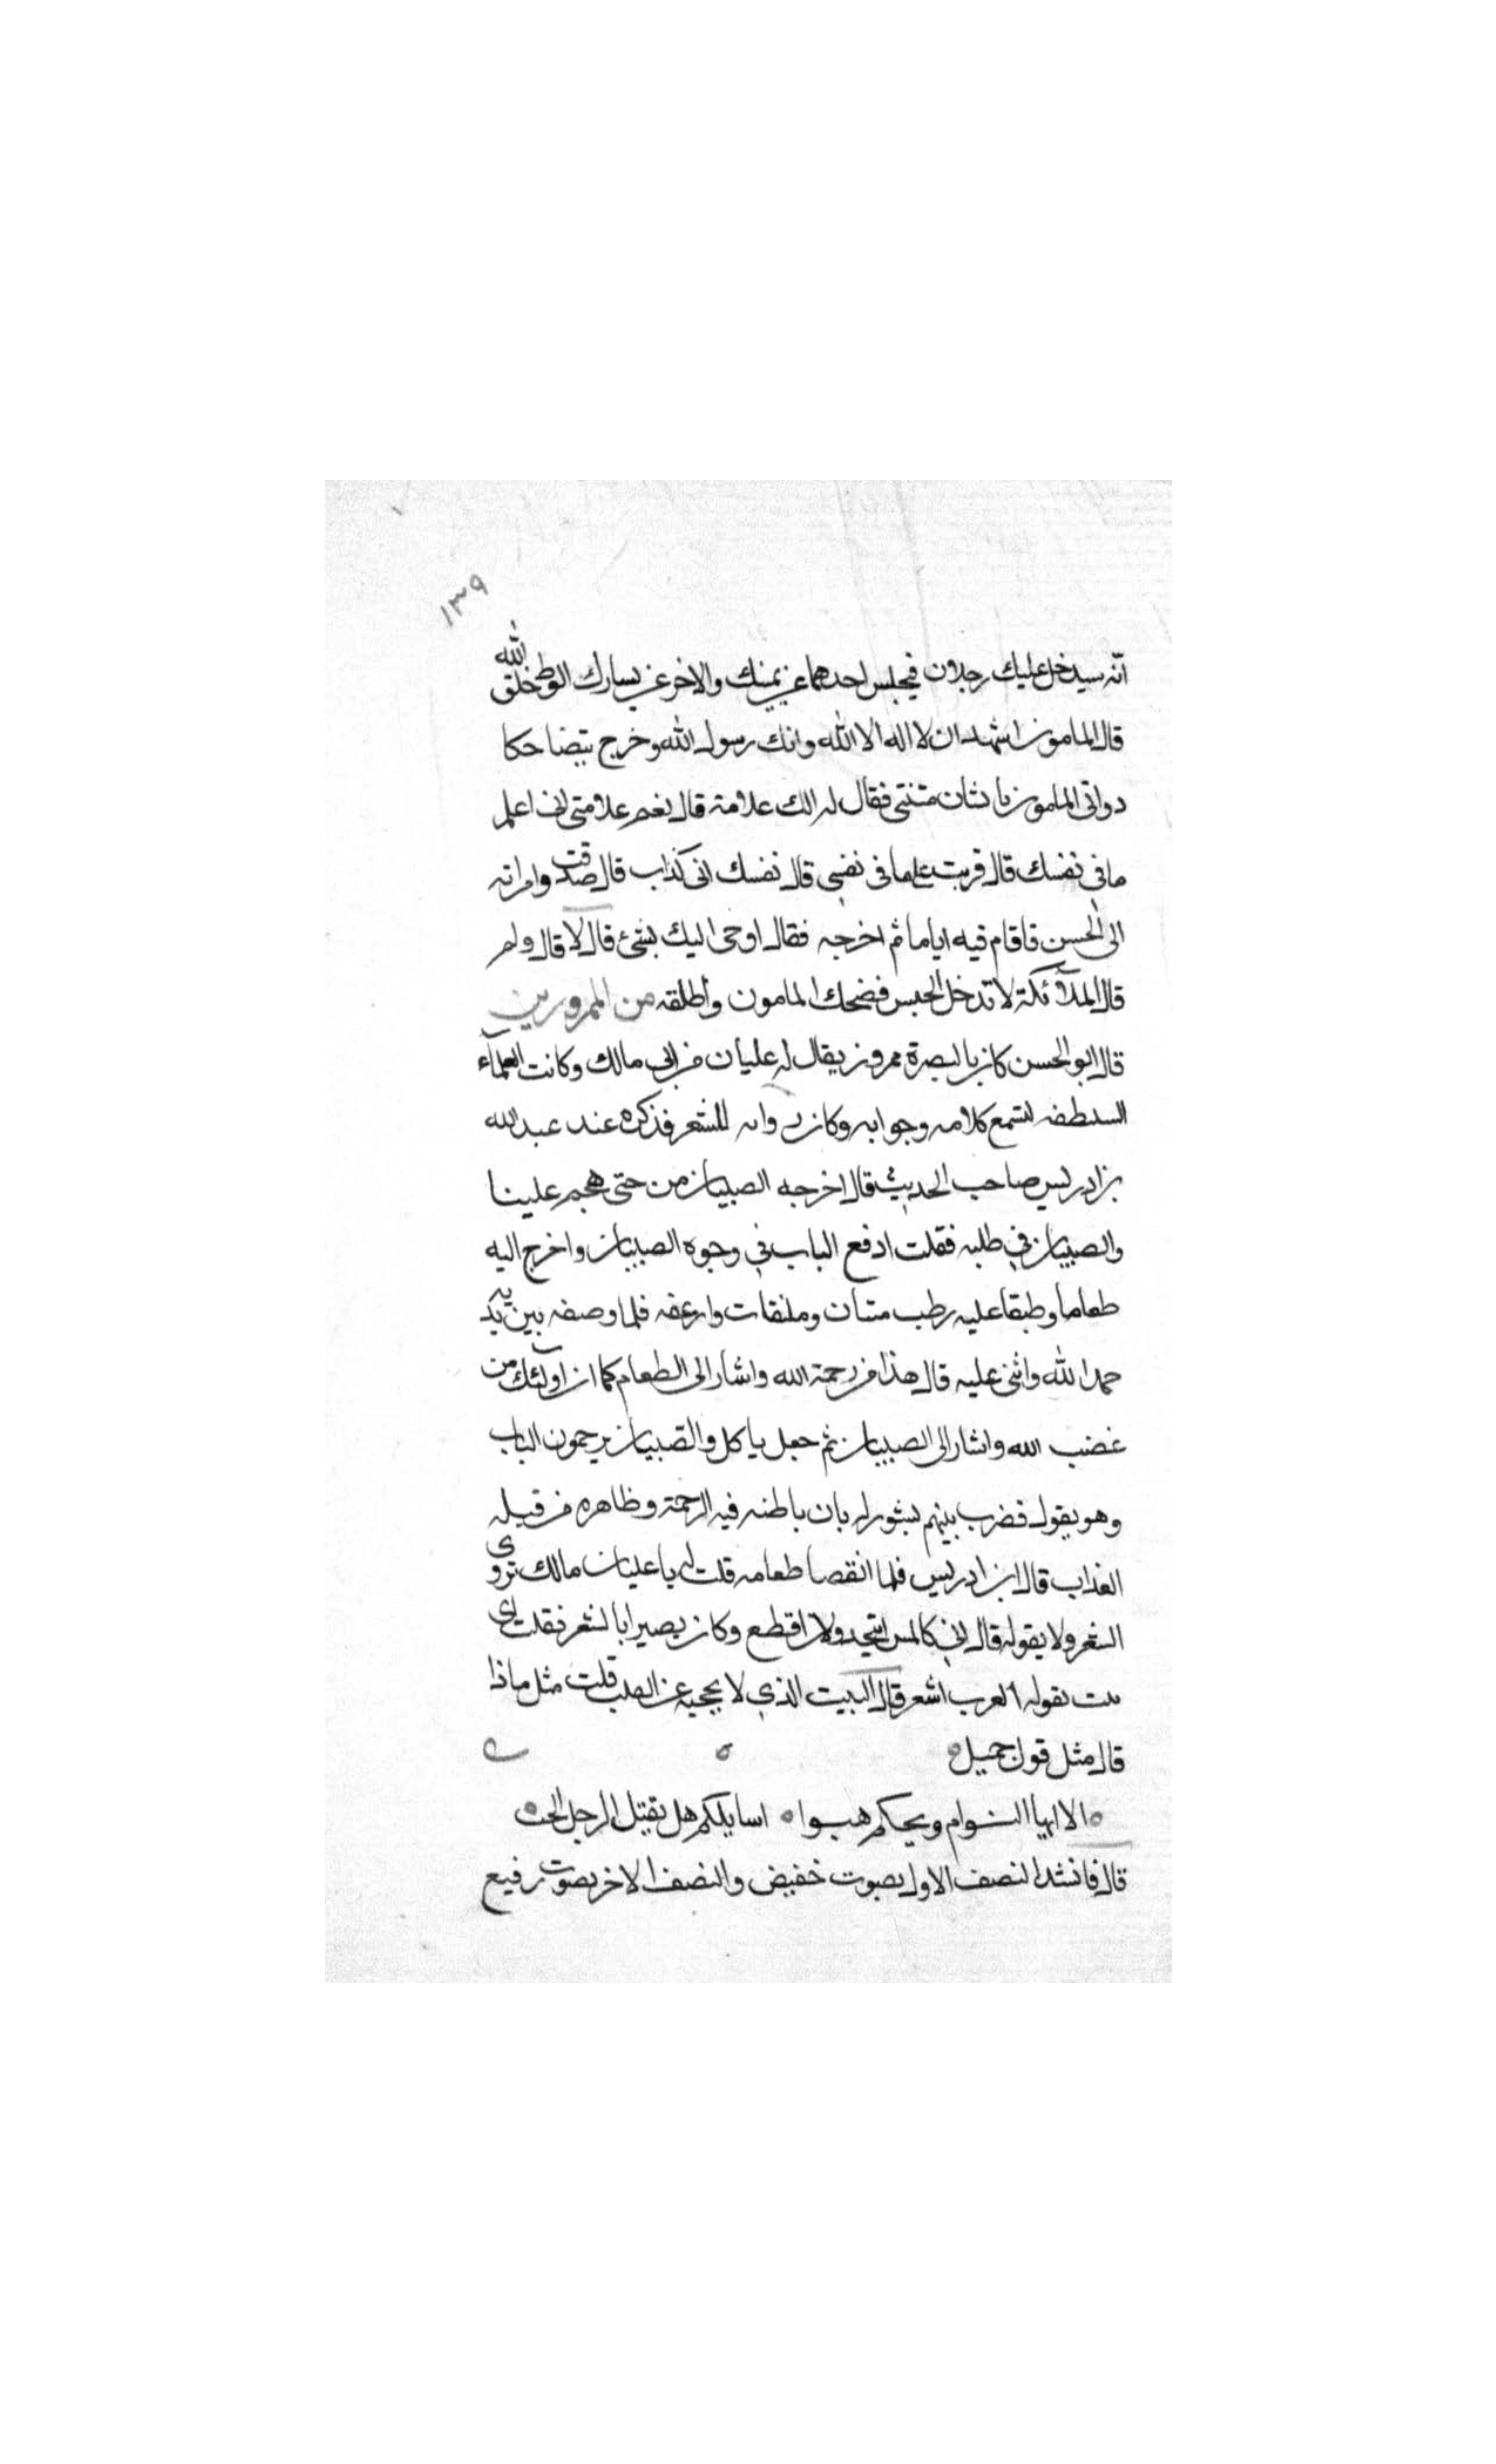 ١٣٩
انّه سيدخل عليك رجلان فيجلس احدهما عن يمينك والاخر عن يسارك الوط خلق الله
قال المامون اشهد ان لا اله الا الله وانك رسول الله وخرج يتضاحكا
دواتى المامون بانشان متنتى فقال له الك علامة قال نعم علامتى انى اعلم
ما فى نفسك قال قربت على ما فى نفسى قال نفسك انى كذاب قال صدقت وامر به
الى الحسن فاقام فيه اياما ثم اخرجه فقال اوحى اليك بشئ قال لا قال ولم
قال الملآئكة لا تدخل الحبس فضحك المامون وأطلقه من الممرورين
قال ابو الحسن كان بالبصرة ممرور يقال له عليان من ابى مالك وكانت العلمآء
لتسمع كلامه وجوابه وكان للشعر فذكره عند عبد الله
بن ادريس صاحب الحديث قال اخرجه الصبيان من حتى هجم علينا
والصبيان في طلبه فقلت ادفع الباب في وجوه الصبيان واخرج اليه
طعاما وطبقا عليه رطب متسان وملتقات وارغفه فلما وصفه بين يديه
حمد الله واثنى عليه قال هذا من رحمة الله واشار الى الطعام كما ان اولئك من
غضب الله واشار الى الصبيان ثم جعل ياكل والصّبيان يرجمون الباب
وهو يقول فضرب بينهم بشور له بان باطنه فيه الرحمة وظاهره من قبله
العذاب قال ابن ادريس فلما انقصا طعامه قلت له يا عليان مالك تروى
الشعر ولا يقوله قال انى كالمسن اشحد ولا اقطع وكان بصيرا بالشعر فقلت اى
بيت يقوله العرب اشعر قال البيت الذي لا يحجبه عن القلب قلت مثل ماذا
قال مثل قول جميل
الا ايها النوام ويحكم هبوا اسايلكم هل يقتل الرجل الحب
قال فانشد النصف الاول بصوت خفيض والنصف الاخر بصوت رفيع